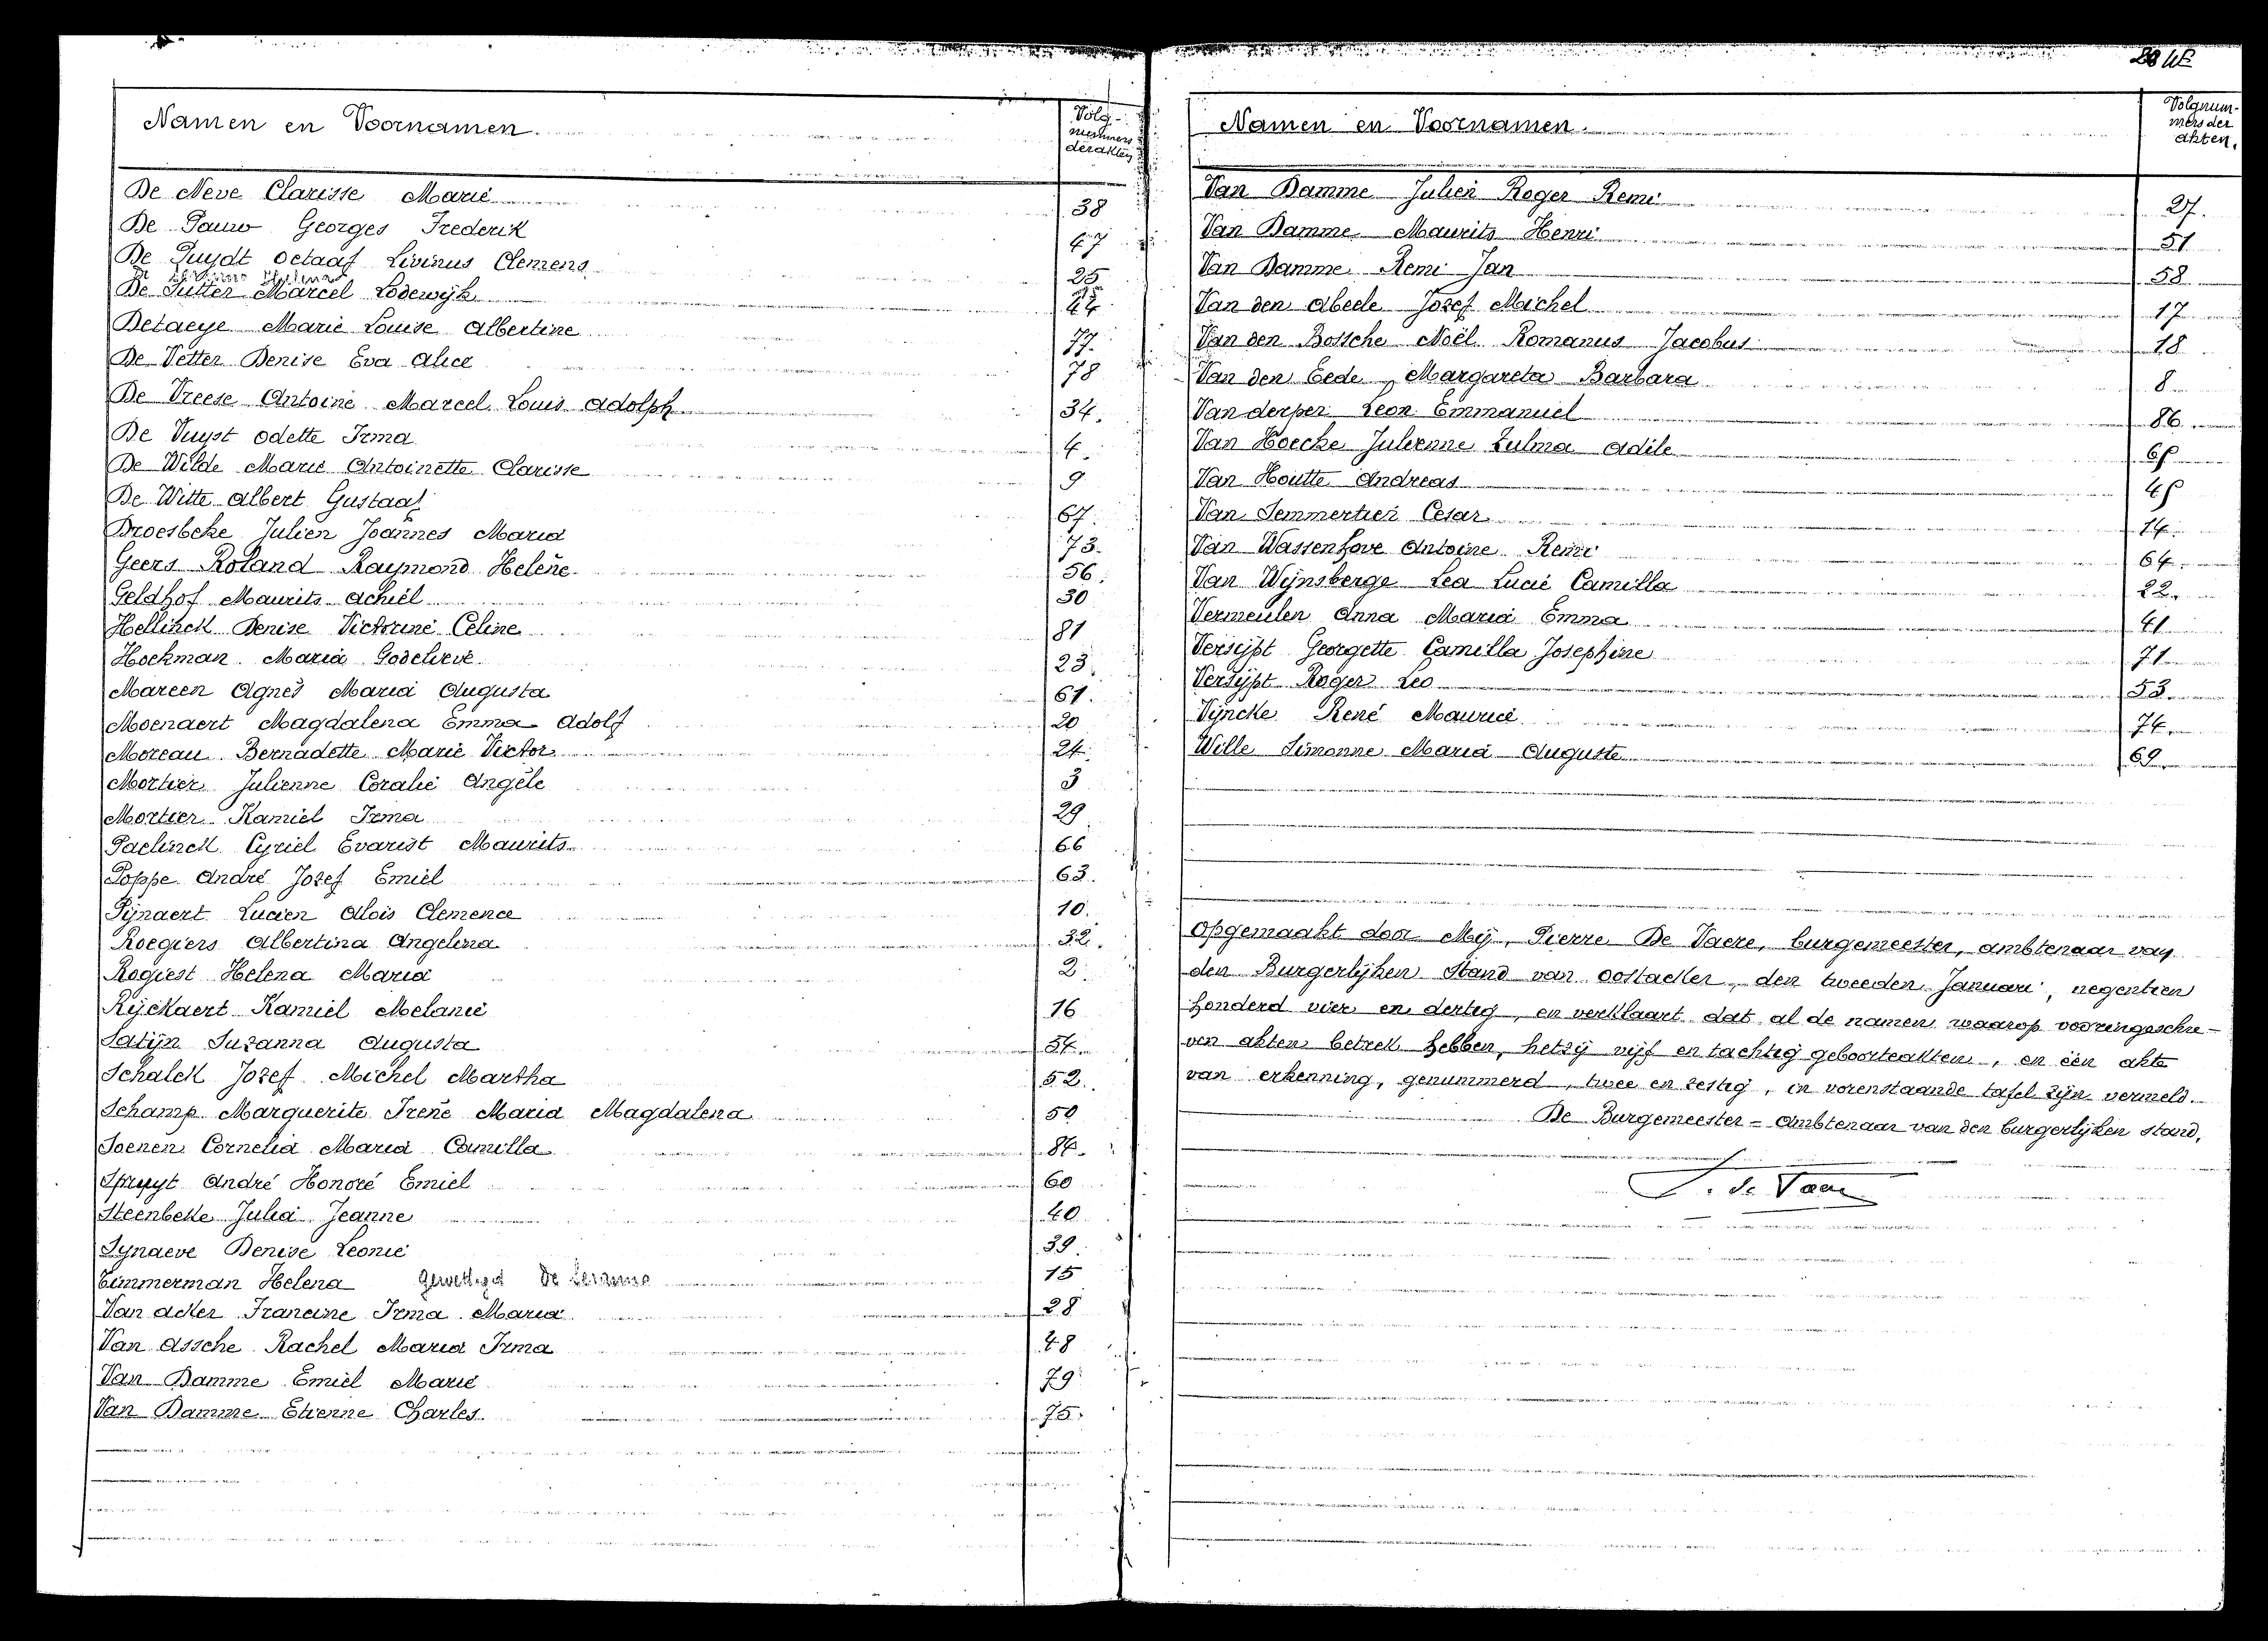 Namen en Voornamen. Volg-
nummers
der akten
De Neve Clarisse Marie 38
De Pauw Georges Frederik 47
De Puydt Octaaf Livinus Clemens 25
De
De Sutter Marcel Lodewijk 44
Detaeye Marie Louise Albertine 77.
De Vetter Denise Eva Alice 78
De Vreese Antoine Marcel Louis Adolph 34.
De Vuyst Odette Irma 4.
De Wilde Marie Antoinette Clarisse 9
De Witte Albert Gustaaf 67.
Droesbeke Julien Joannes Maria 73.
Geers Roland Raymond Helene 56.
Geldhof Maurits Achiel 30
Hellinck Denise Victorine Celine 81
Hoekman Maria Godelieve 23.
Mareen Agnes Maria Augusta 61.
Moenaert Magdalena Emma Adolf 20
Moreau Bernadette Marie Victor 24.
Mortier Julienne Coralie Angèle 3
Mortier Kamiel Irma 29
Paelinck Cyriel Evarist Maurits 66
Poppe André Jozef Emiel 63.
Pynaert Lucien Alois Clemence 10.
Roegiers Albertina Angelina 32.
Rogiest Helena Maria 2.
Ryckaert Kamiel Melanie 16
Satijn Suzanna Augusta 54.
Schalck Jozef Michel Martha 52.
Schamp Marguerite Irene Maria Magdalena 50
Soenen Cornelia Maria Camilla 84.
Spruyt André Honoré Emiel 60
Steenbeke Julia Jeanne 40
Synaeve Denise Leonie 39.
Timmerman Helena gewettigd 15
Van Acker Francine Irma Maria 28
Van Assche Rachel Maria Irma 48
Van Damme Emiel Marie 79
Van Damme Etienne Charles 75.
Namen en Voornamen. Volgnum-
mers der
akten.
Van Damme Julien Roger Remi 27.
Van Damme Maurits Henri 51
Van Damme Remi Jan 58
Van den Abeele Jozef Michel 17
Van den Bossche Noël Romanus Jacobus 18
Van den Eede Margareta Barbara 8
Vanderper Leon Emmanuel 86
Van Hoecke Julienne Zulma Adile
Van Houtte Andreas
Van Semmertier Cesar 14.
Van Wassenhove Antoine Remi 64.
Van Wijnsberge Lea Lucie Camilla 22.
Vermeulen Anna Maria Emma 41
Versijpt Georgette Camilla Josephine 71
Versijpt Roger Leo 53.
Vijncke René Maurice 74.
Wille Simonne Maria Auguste 69.
Opgemaakt door Mij, Pierre De Vaere, burgemeester, ambtenaar van
den Burgerlijken Stand van Oostacker, den tweeden Januari, negentien
honderd vier en dertig, en verklaart dat al de namen waarop vooringeschre-
ven akten betrek hebben, hetzij vijf en tachtig geboorteakten, en één akte
van erkenning, genummerd, twee en zestig, in vorenstaande tafel zijn vermeld.
De Burgemeester - Ambtenaar van den burgerlijken stand,